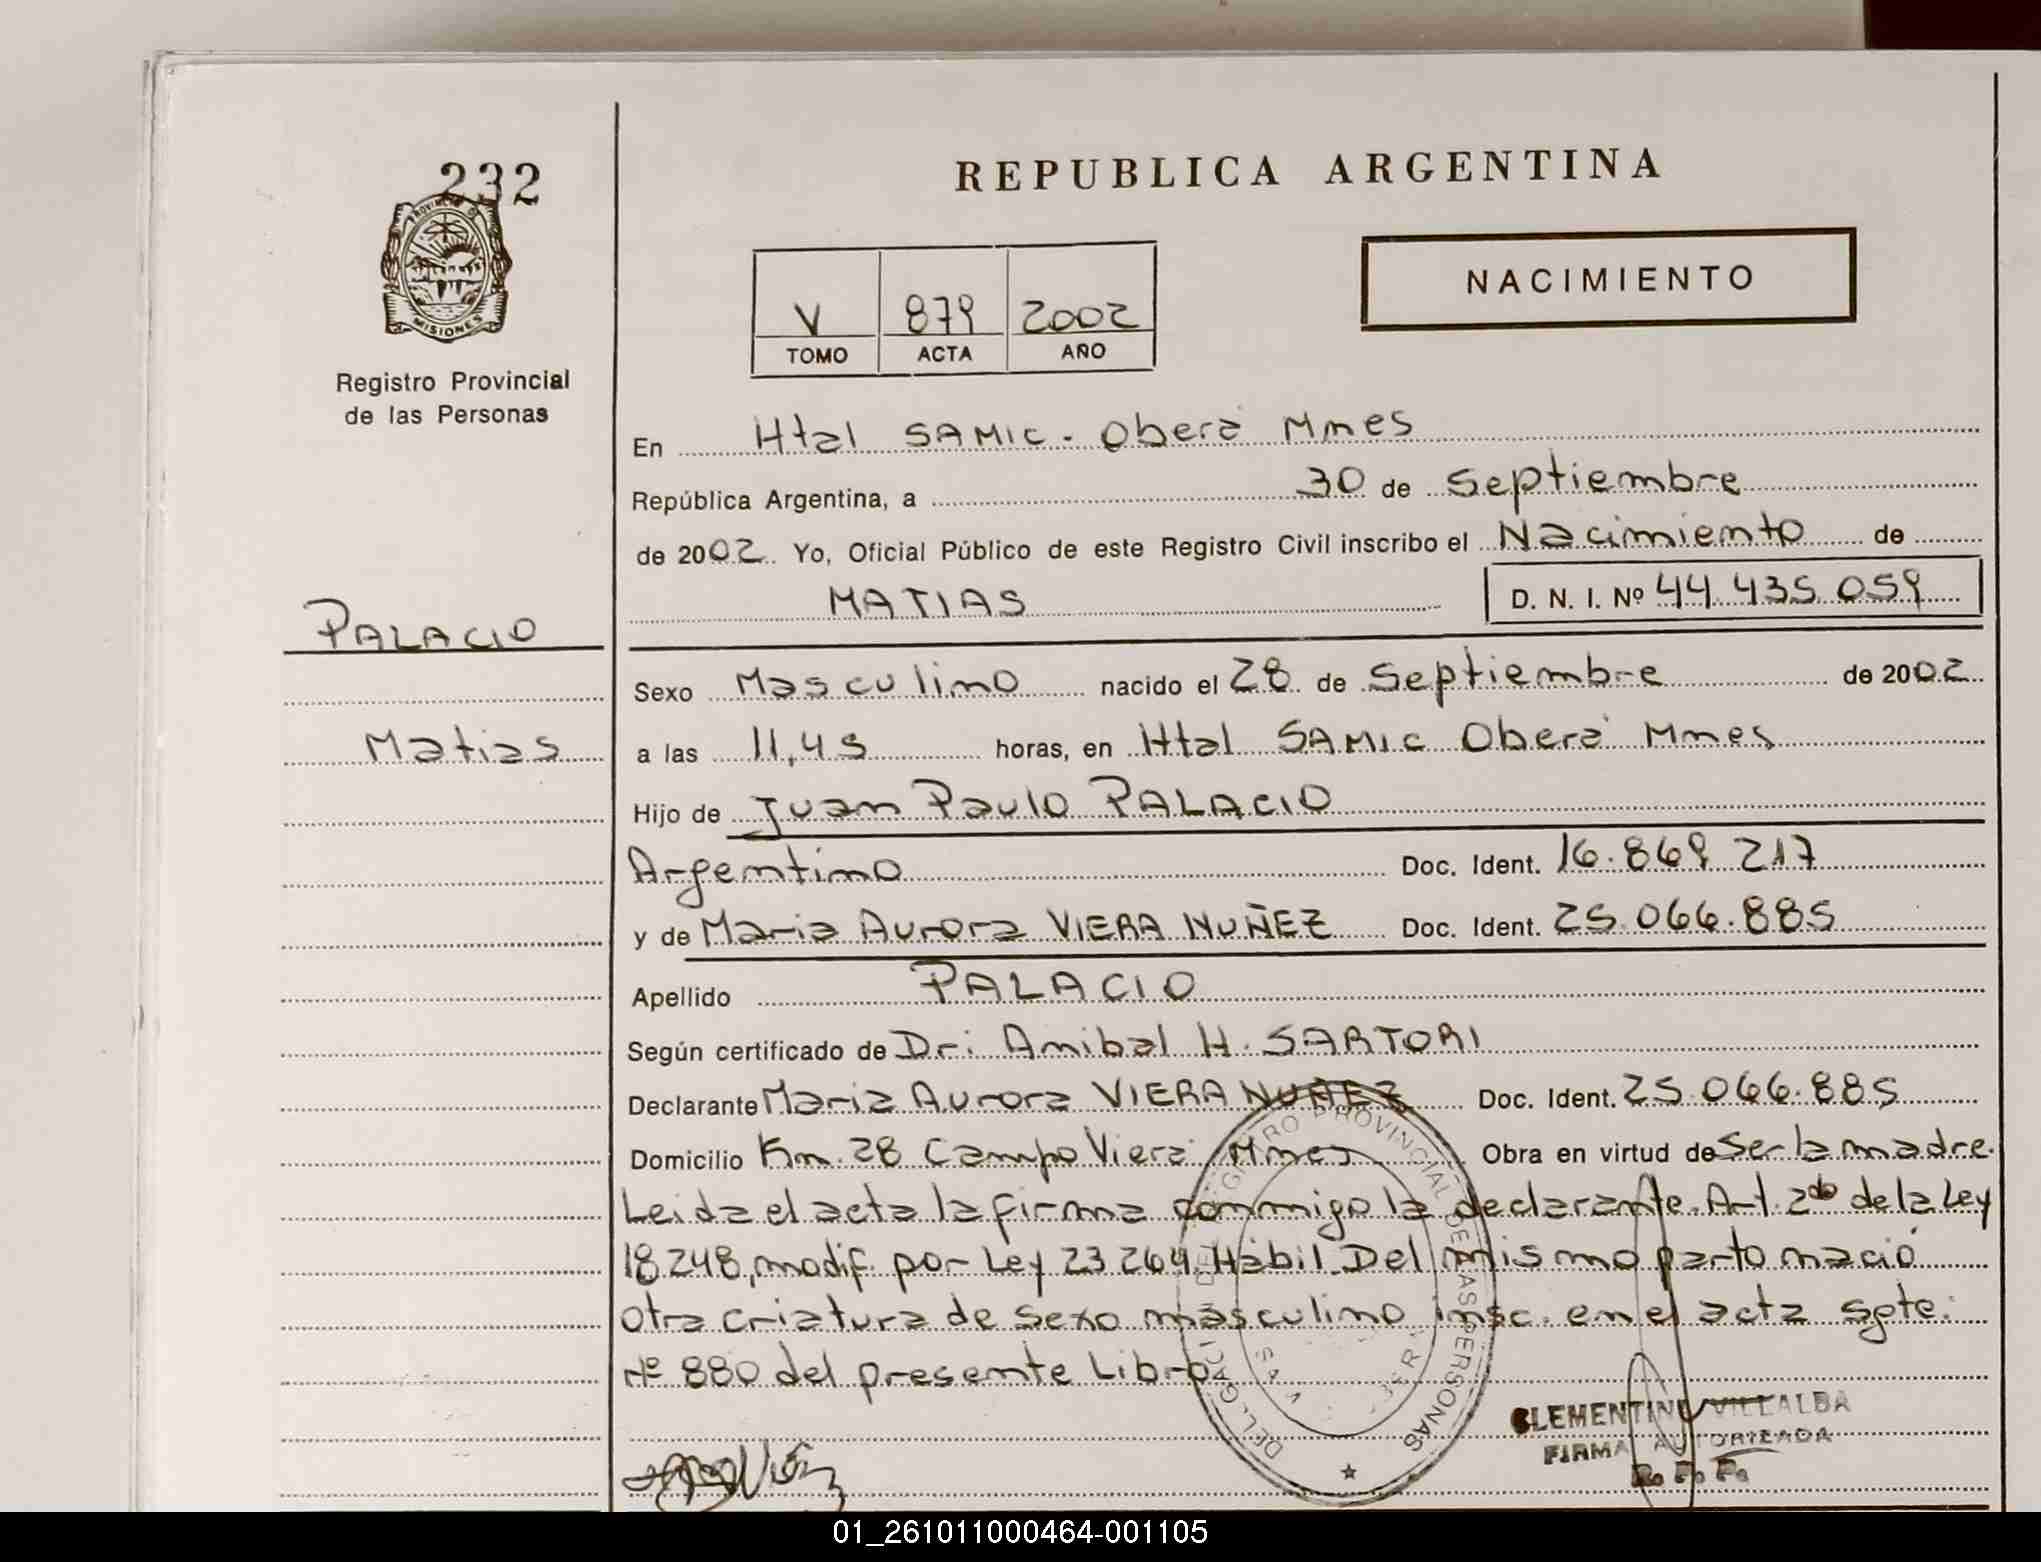 232
REPUBLICA ARGENTINA
PROVINCIA DE
MISIONES
NACIMIENTO
V 879 2002
TOMO ACTA AÑO
Registro Provincial
de las Personas
En Htal SAMIC. Oberá Mnes
República Argentina, a 30 de Septiembre
de 2002. Yo, Oficial Público de este Registro Civil inscribo el Nacimiento de
MATIAS D. N. I. Nº 44.435.059
PALACIO
Sexo Masculino nacido el 28 de Septiembre de 2002
Matias
a las 11,45 horas, en Htal SAMIC Oberá Mnes
Hijo de Juan Paulo PALACIO
Argentino Doc. Ident. 16.869.217
y de Maria Aurora VIERA NUÑEZ Doc. Ident. 25.066.885
Apellido PALACIO
Según certificado de Dr: Anibal H. SARTORI
Declarante Maria Aurora VIERA NUÑEZ Doc. Ident. 25.066.885
Domicilio Km. 28 Campo Viera Mnes Obra en virtud de Ser la madre.
Leida el acta la firma conmigo la declarante. Art. 2do de la Ley
18248, modif. por Ley 23264. Hábil. Del mismo parto nació
otra criatura de sexo masculino insc. en el acta sgte:
Nº 880 del presente Libro.
REGISTRO PROVINCIAL DE LAS PERSONAS
CLEMENTINO VILLALBA
FIRMA AUTORIZADA
R. P. P.
01_261011000464-001105